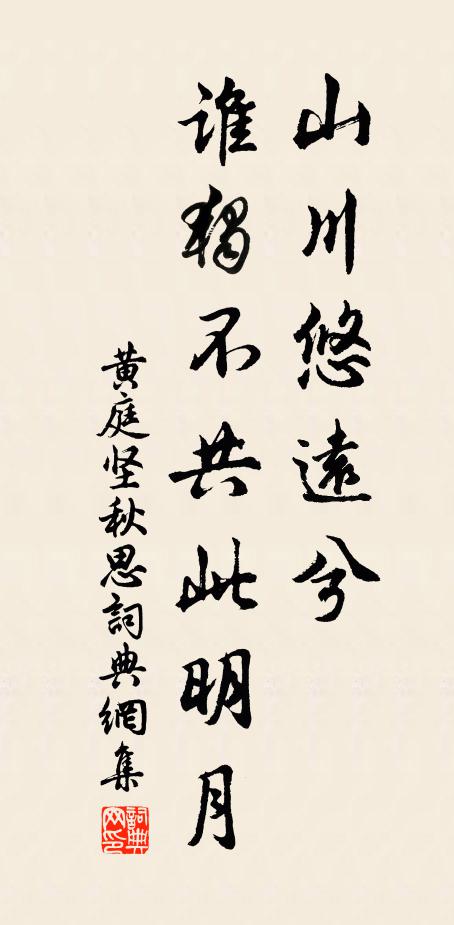 山川悠遠兮
誰獨不共此明月
黄庭坚秋思詞典網集
詞典網印